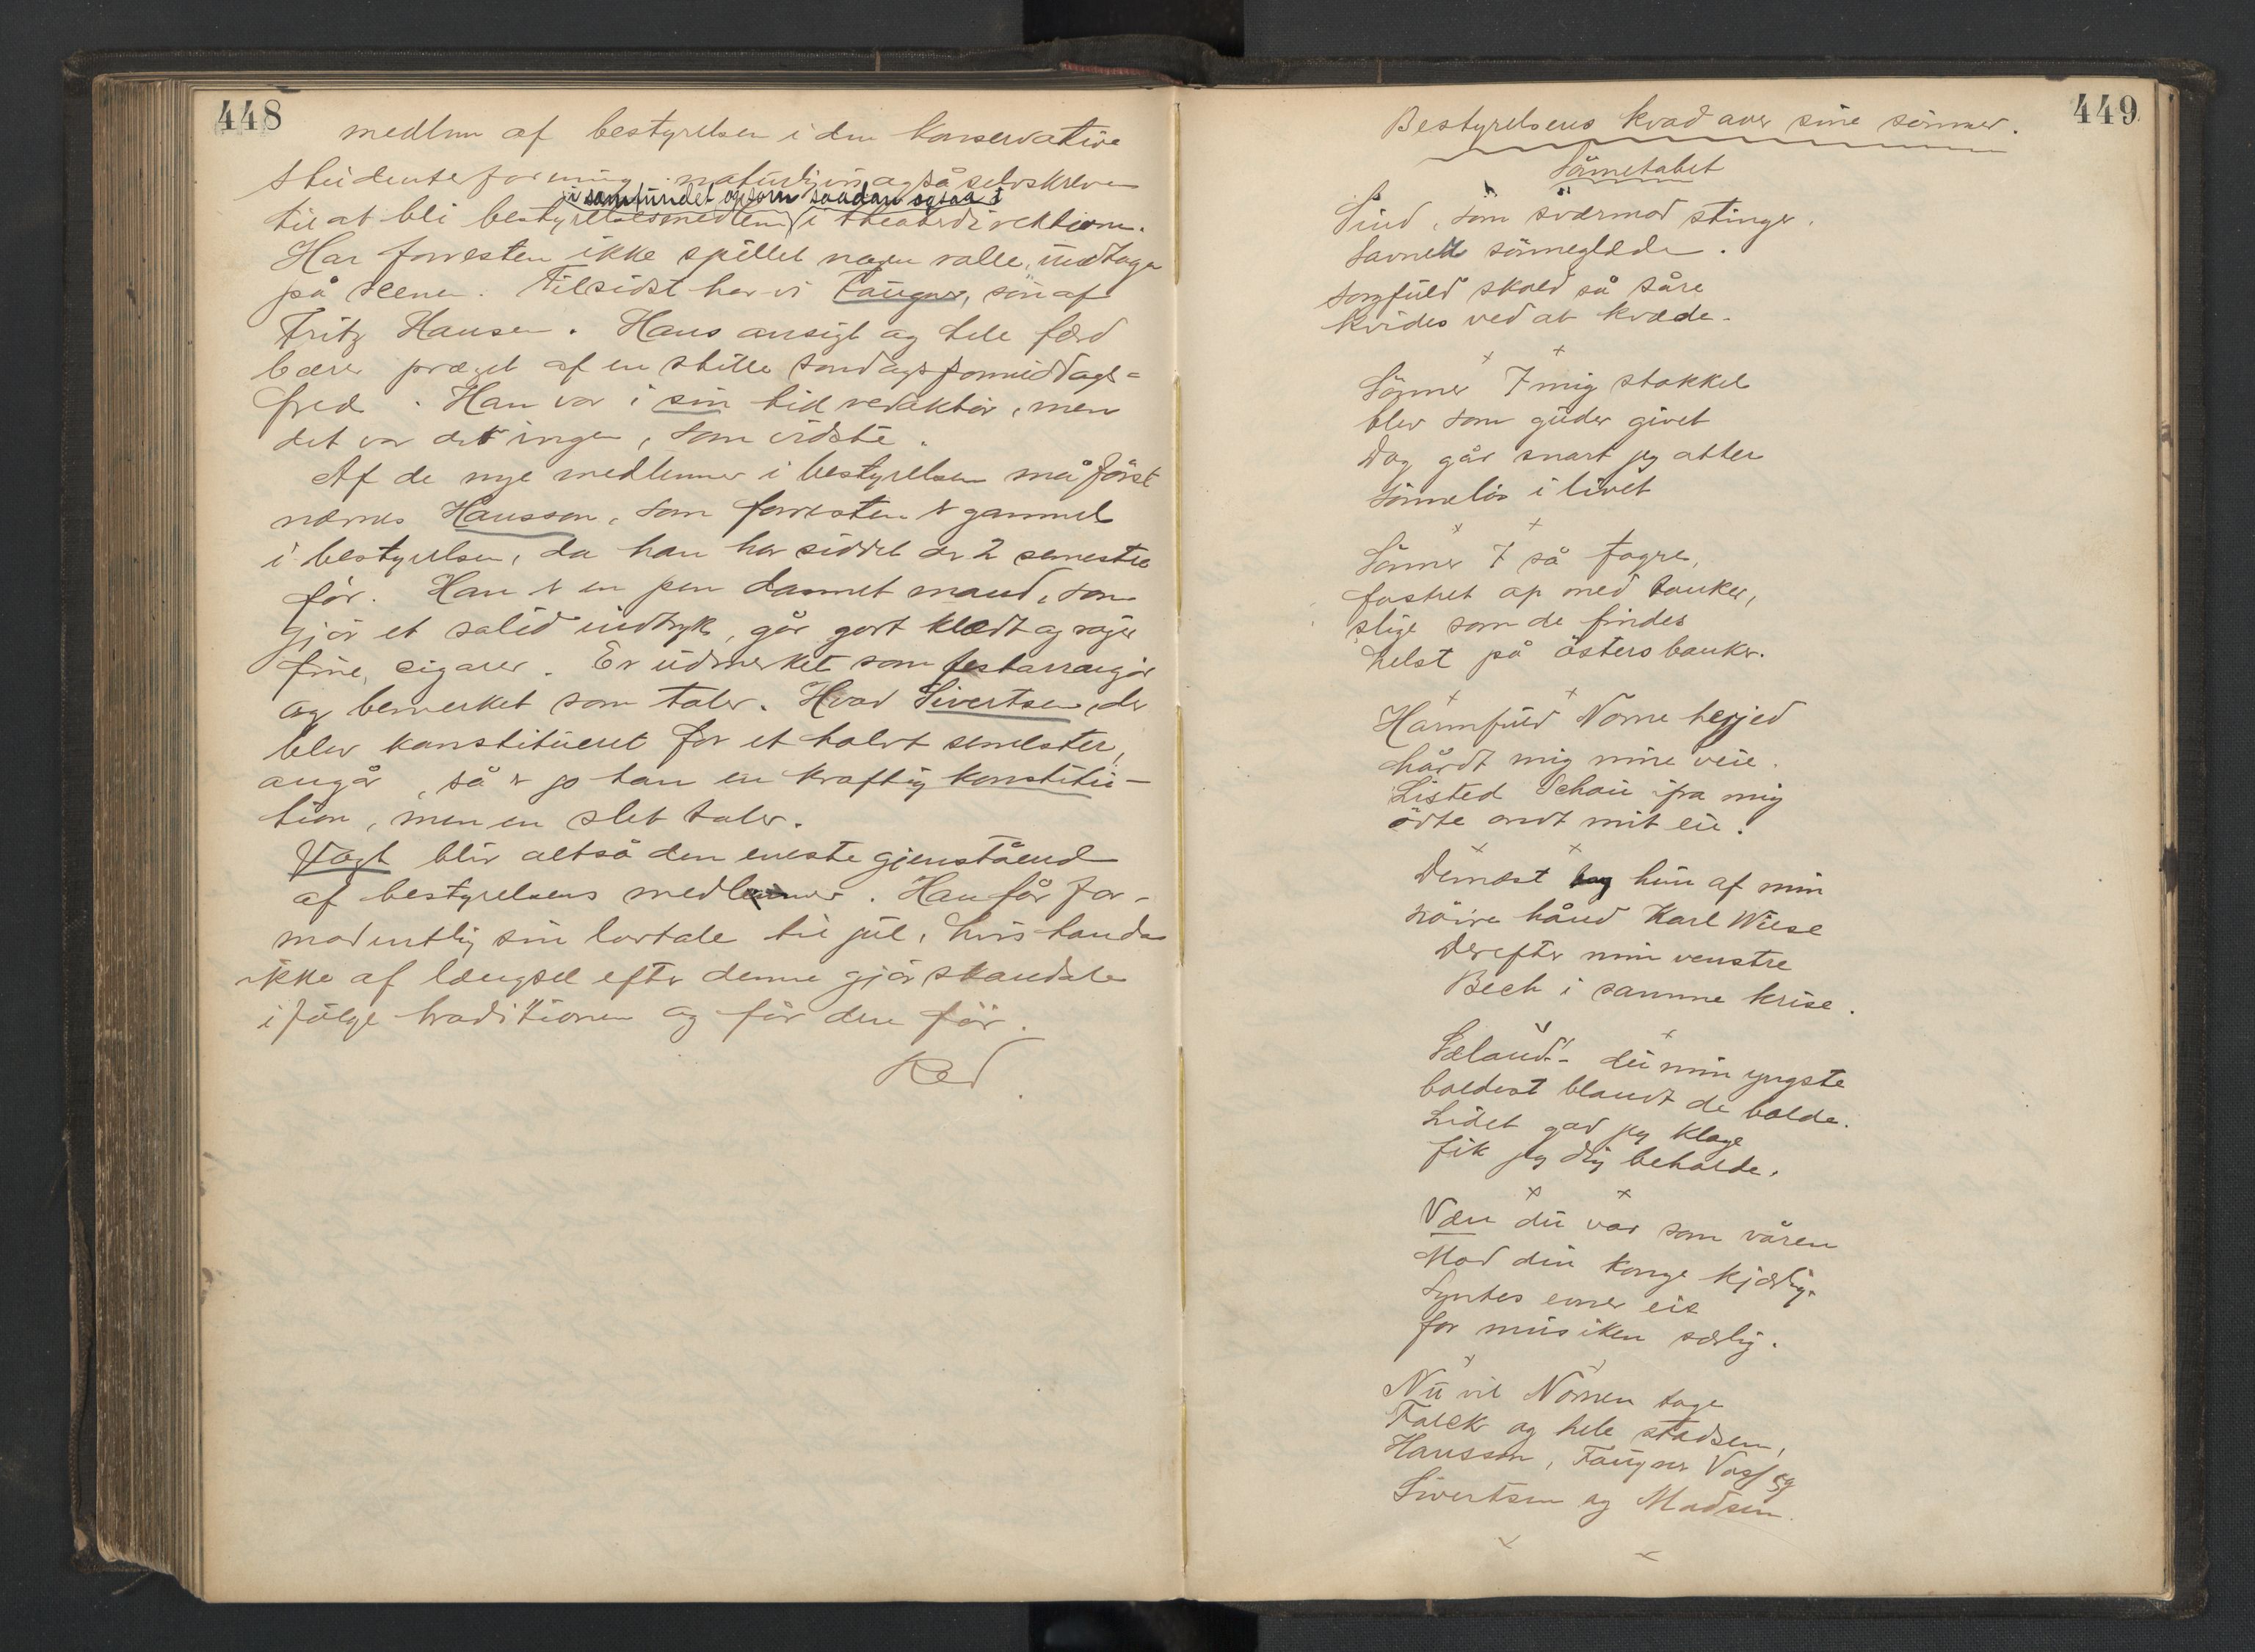 448
medlem af bestyrelsen i den konservative
Studenterforening. naturligvis også selvskreven
i samfundet og som saadan ogsaa i
til at bli bestyrelsesmedlem i theaterdirektionen.
Har forresten ikke spillet nogen rolle, undtagen
på scenen. Tilsidst har vi Faugner, søn af
Fritz Hansen. Hans ansigt og hele færd
bærer præget af en stille søndagsformiddags-
fred. Han var i sin tid redaktør, men
det var det ingen, som vidste.
Af de nye medlemmer i bestyrelsen må först
nævnes Hansson, som forresten er gammel
i bestyrelsen, da han har siddet der 2 semestre
för. Han er en pen dannet mand, som
gjör et solid indtryk, går godt klædt og røger
fine cigarer. Er udmerket som festarrangör
og bemerket som taler. Hvad Sivertsen, der
blev konstitueret for et halvt semester,
angår, så er jo han en kraftig konstitu-
tion, men en slet taler.
Vogt blir altså den eneste gjenstående
af bestyrelsens medlemmer. Han får for-
modentlig sin lovtale til jul, hvis han da
ikke af længsel efter denne gjör skandale
ifölge traditionen og får den för.
Red
449
Bestyrelsens kvad over sine sönner.
Sönnetabet
Sind, som sværmod stinger,
savnets sönneglæde.
sorgfuld skald så såre
kvides ved at kvæde.
Sönner 7 mig stakkel
blev som guder givet
Dog går snart jeg atter
sönnelös i livet
Sönner 7 så fagre,
fostret op med tanker,
slige som de findes
helst på östersbanker.
Harmfuld Norne hegjed
hårdt mig mine veie.
Listed Schou fra mig
ödte ondt mit eie.
Dernæst hun af min
höire hånd Karl Wiese
Derefter min venstre
Bech i samme krise.
Sæland! - du min yngste
boldest blandt de bolde.
Lidet gad jeg klage
fik jeg dig beholde.
Væn du var som våren
Mod din konge kjærlig.
Syntes evner eie
for musiken særlig.
Nu vil Nornen tage
Falck og hele stadsen,
Hansson, Faugner Vogt og
Sivertsen og Madsen.